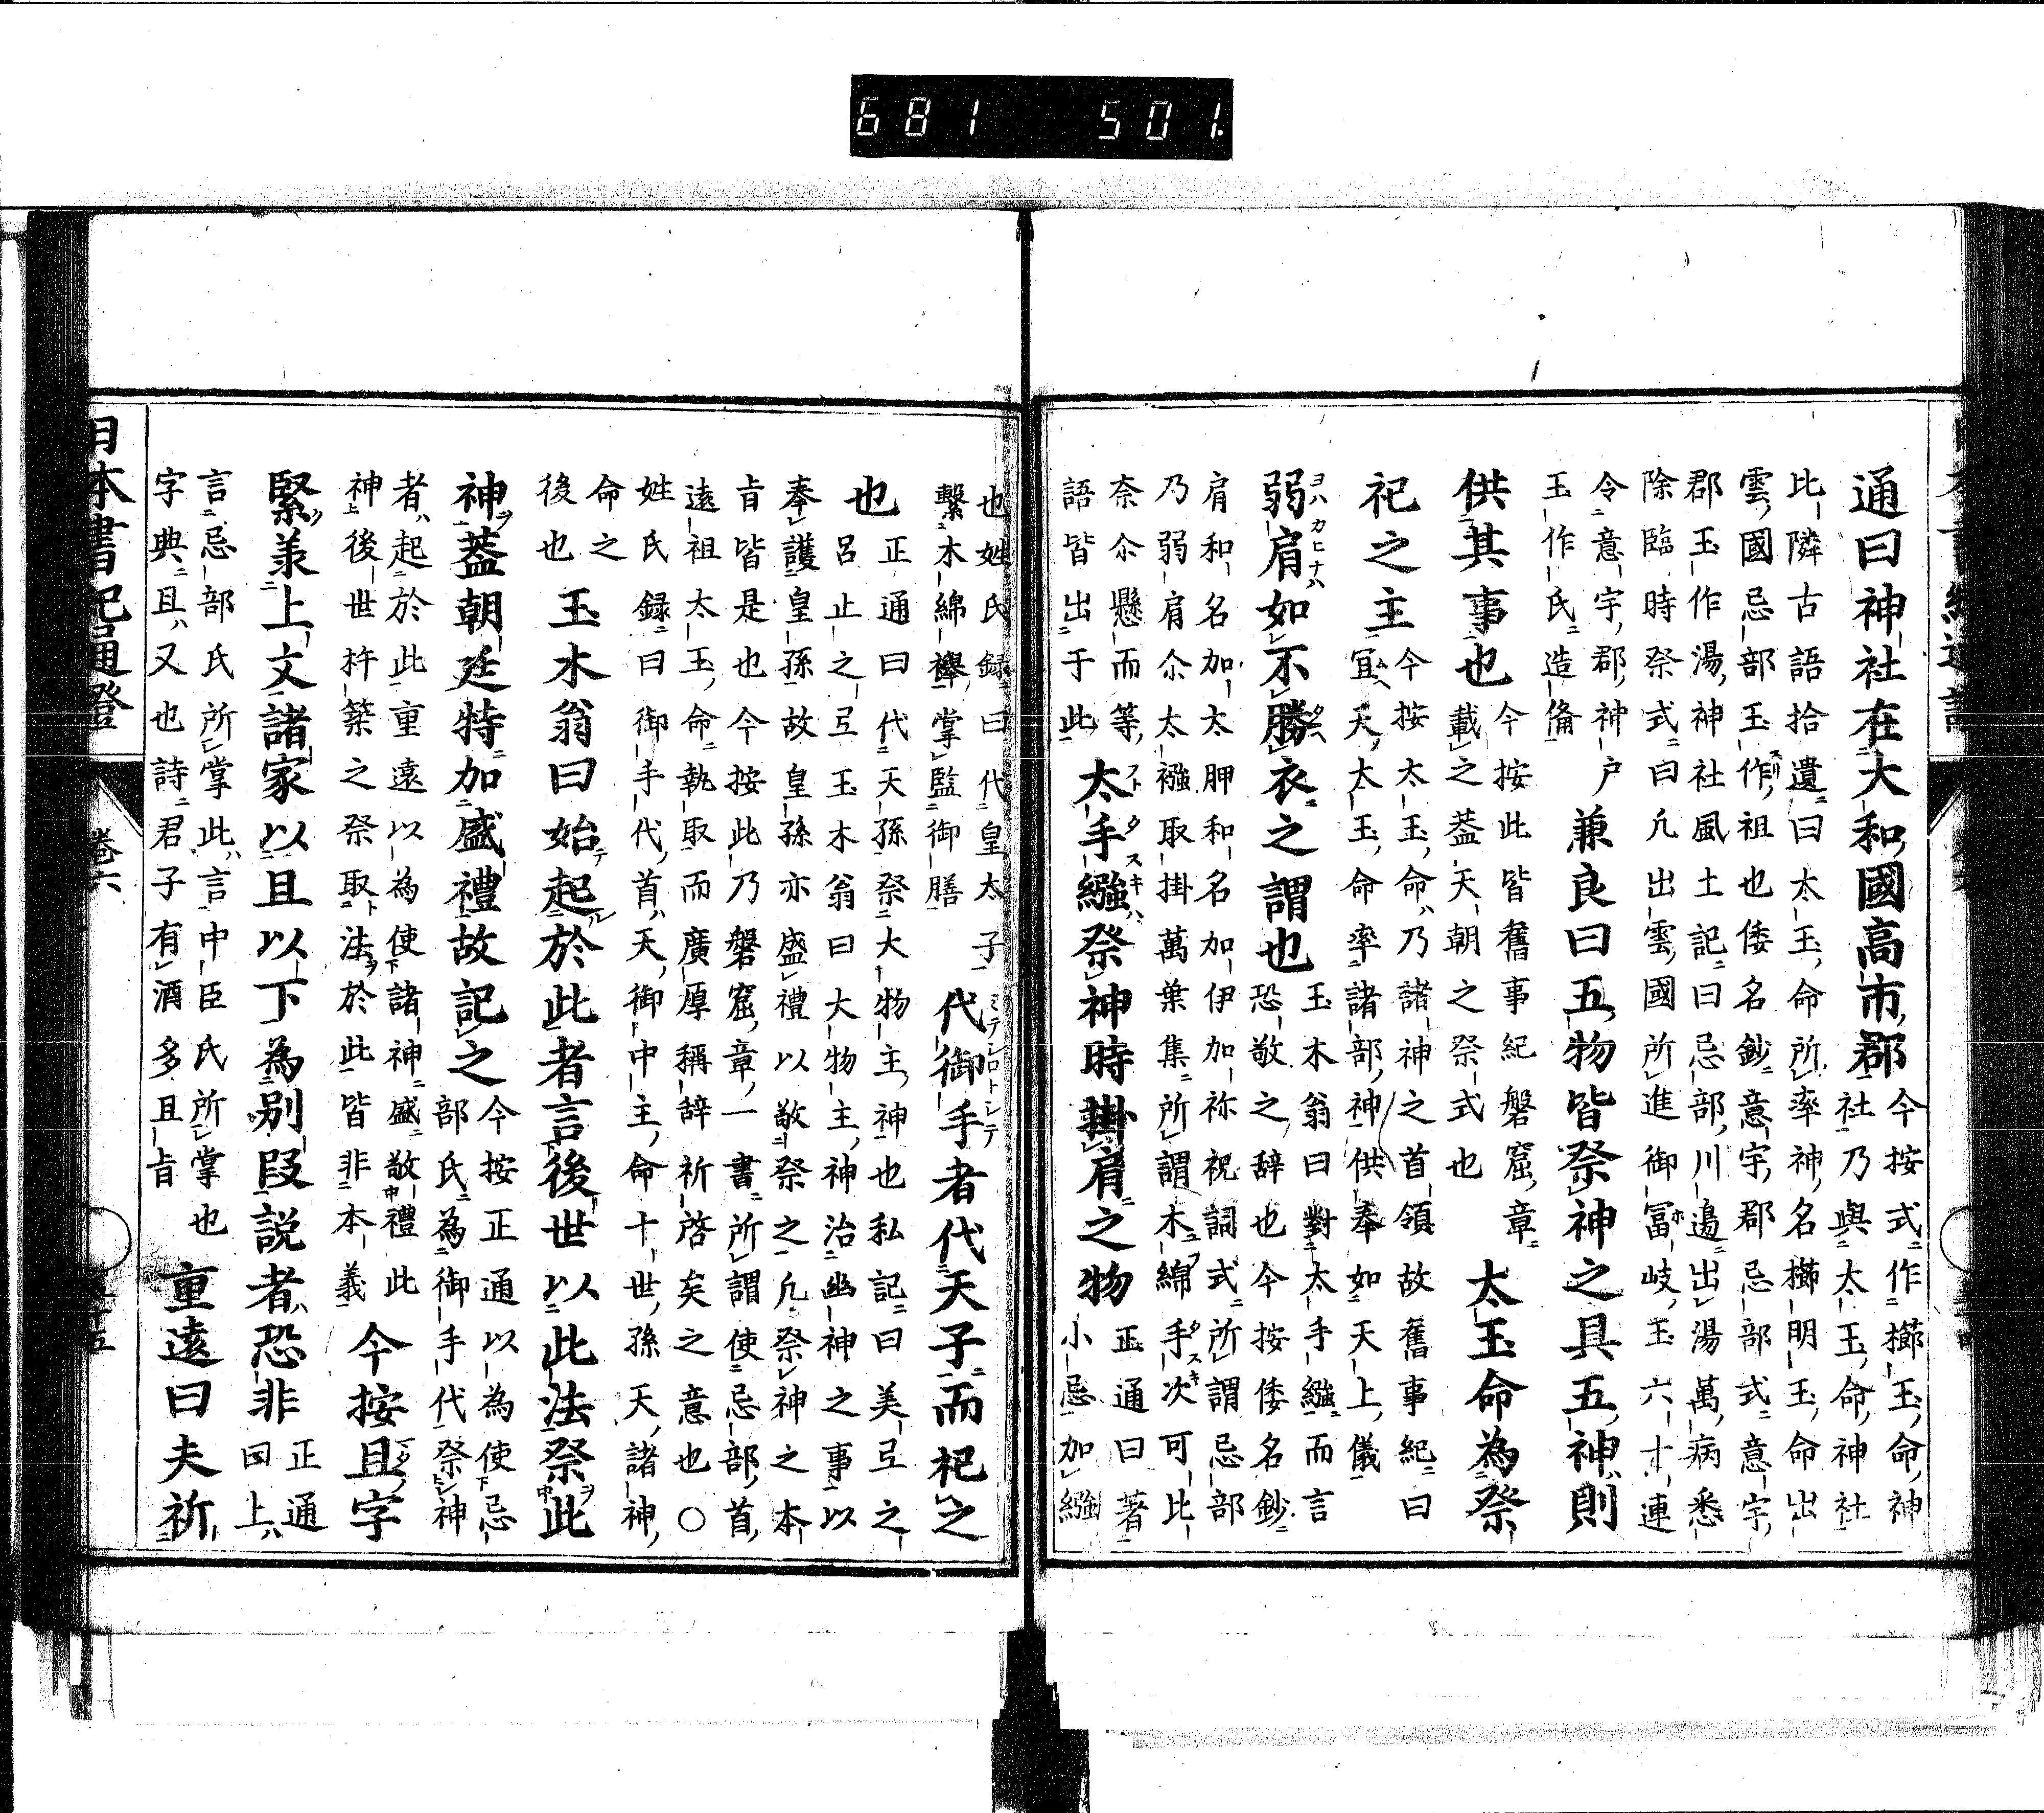 通曰神社在大和國高市郡
今按式作櫛玉命神
社乃與太玉命神社
比隣古語拾遺曰太玉命所率神名櫛明玉命出
雲國忌部玉作祖也倭名鈔意宇郡忌部式意宇
郡玉作湯神社風土記曰忌部川邉出湯萬病悉
除臨時祭式曰凢出雲國所進御冨岐玉六十連
令意宇郡神戸
玉作氏造俻
兼良曰五物皆祭神之具五神則
供其事也
今按此皆舊事紀磐窟章
載之葢天朝之祭式也
太玉命為祭
祀之主
今按太玉命乃諸神之首領故舊事紀曰
宜天太玉命率諸部神供奉如天上儀
弱肩如不勝衣之謂也
玉木翁曰對太手繦而言
恐敬之辞也今按倭名鈔
肩和名加太胛和名加伊加祢祝詞式所謂忌部
乃弱肩尒太襁取掛萬葉集所謂木綿手次可比
奈尒懸而等
語皆出于此
太手繦祭神時掛肩之物
正通曰著
小忌加繦
也姓氏録曰代皇太子
繫木綿襷掌監御膳
代御手者代天子而祀之
也
正通曰代天孫祭大物主神也私記曰美弖之
呂止之弖玉木翁曰大物主神治幽神之事以
奉護皇孫故皇孫亦盛禮以敬祭之凢祭神之本
旨皆是也今按此乃磐窟章一書所謂使忌部首
遠祖太玉命執取而廣厚稱辞祈啓矣之意也○
姓氏録曰御手代首天御中主命十世孫天諸神
命之
後也
玉木翁曰始起於此者言後世以此法祭此
神葢朝廷特加盛禮故記之
今按正通以為使忌
部氏為御手代祭神
者起於此重遠以為使諸神盛敬禮此
神後世杵築之祭取法於此皆非本義
今按且字
緊羕上文諸家以且以下為别段説者恐非
正通
曰上
言忌部氏所掌此言中臣氏所掌也
字典且又也詩君子有酒多且旨
重遠曰夫祈
日本書紀通證
卷六
681 501.